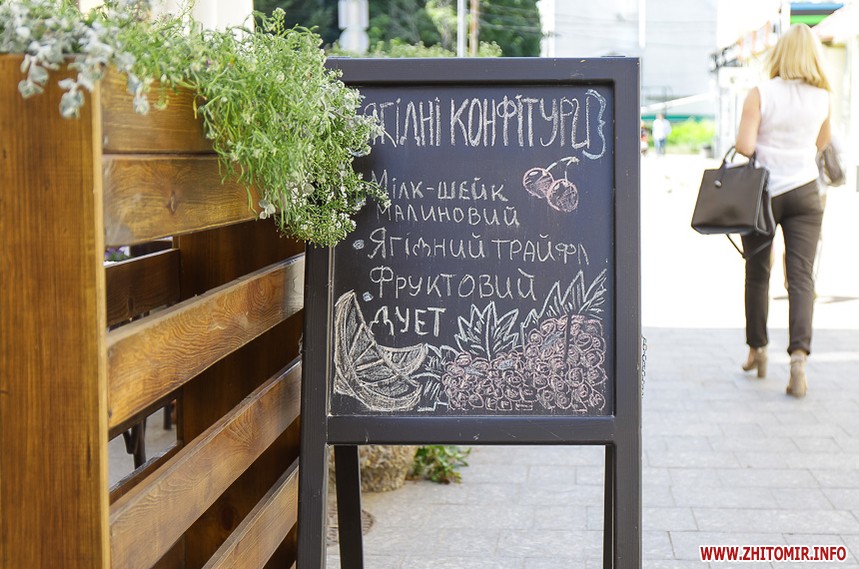 ЯГІДНІ КОНФІТУРИ
МІЛК-ШЕЙК
МАЛИНОВИЙ
ЯГІДНИЙ ТРАЙФЛ
ФРУКТОВИЙ
ДУЕТ
WWW.ZHITOMIR.INFO